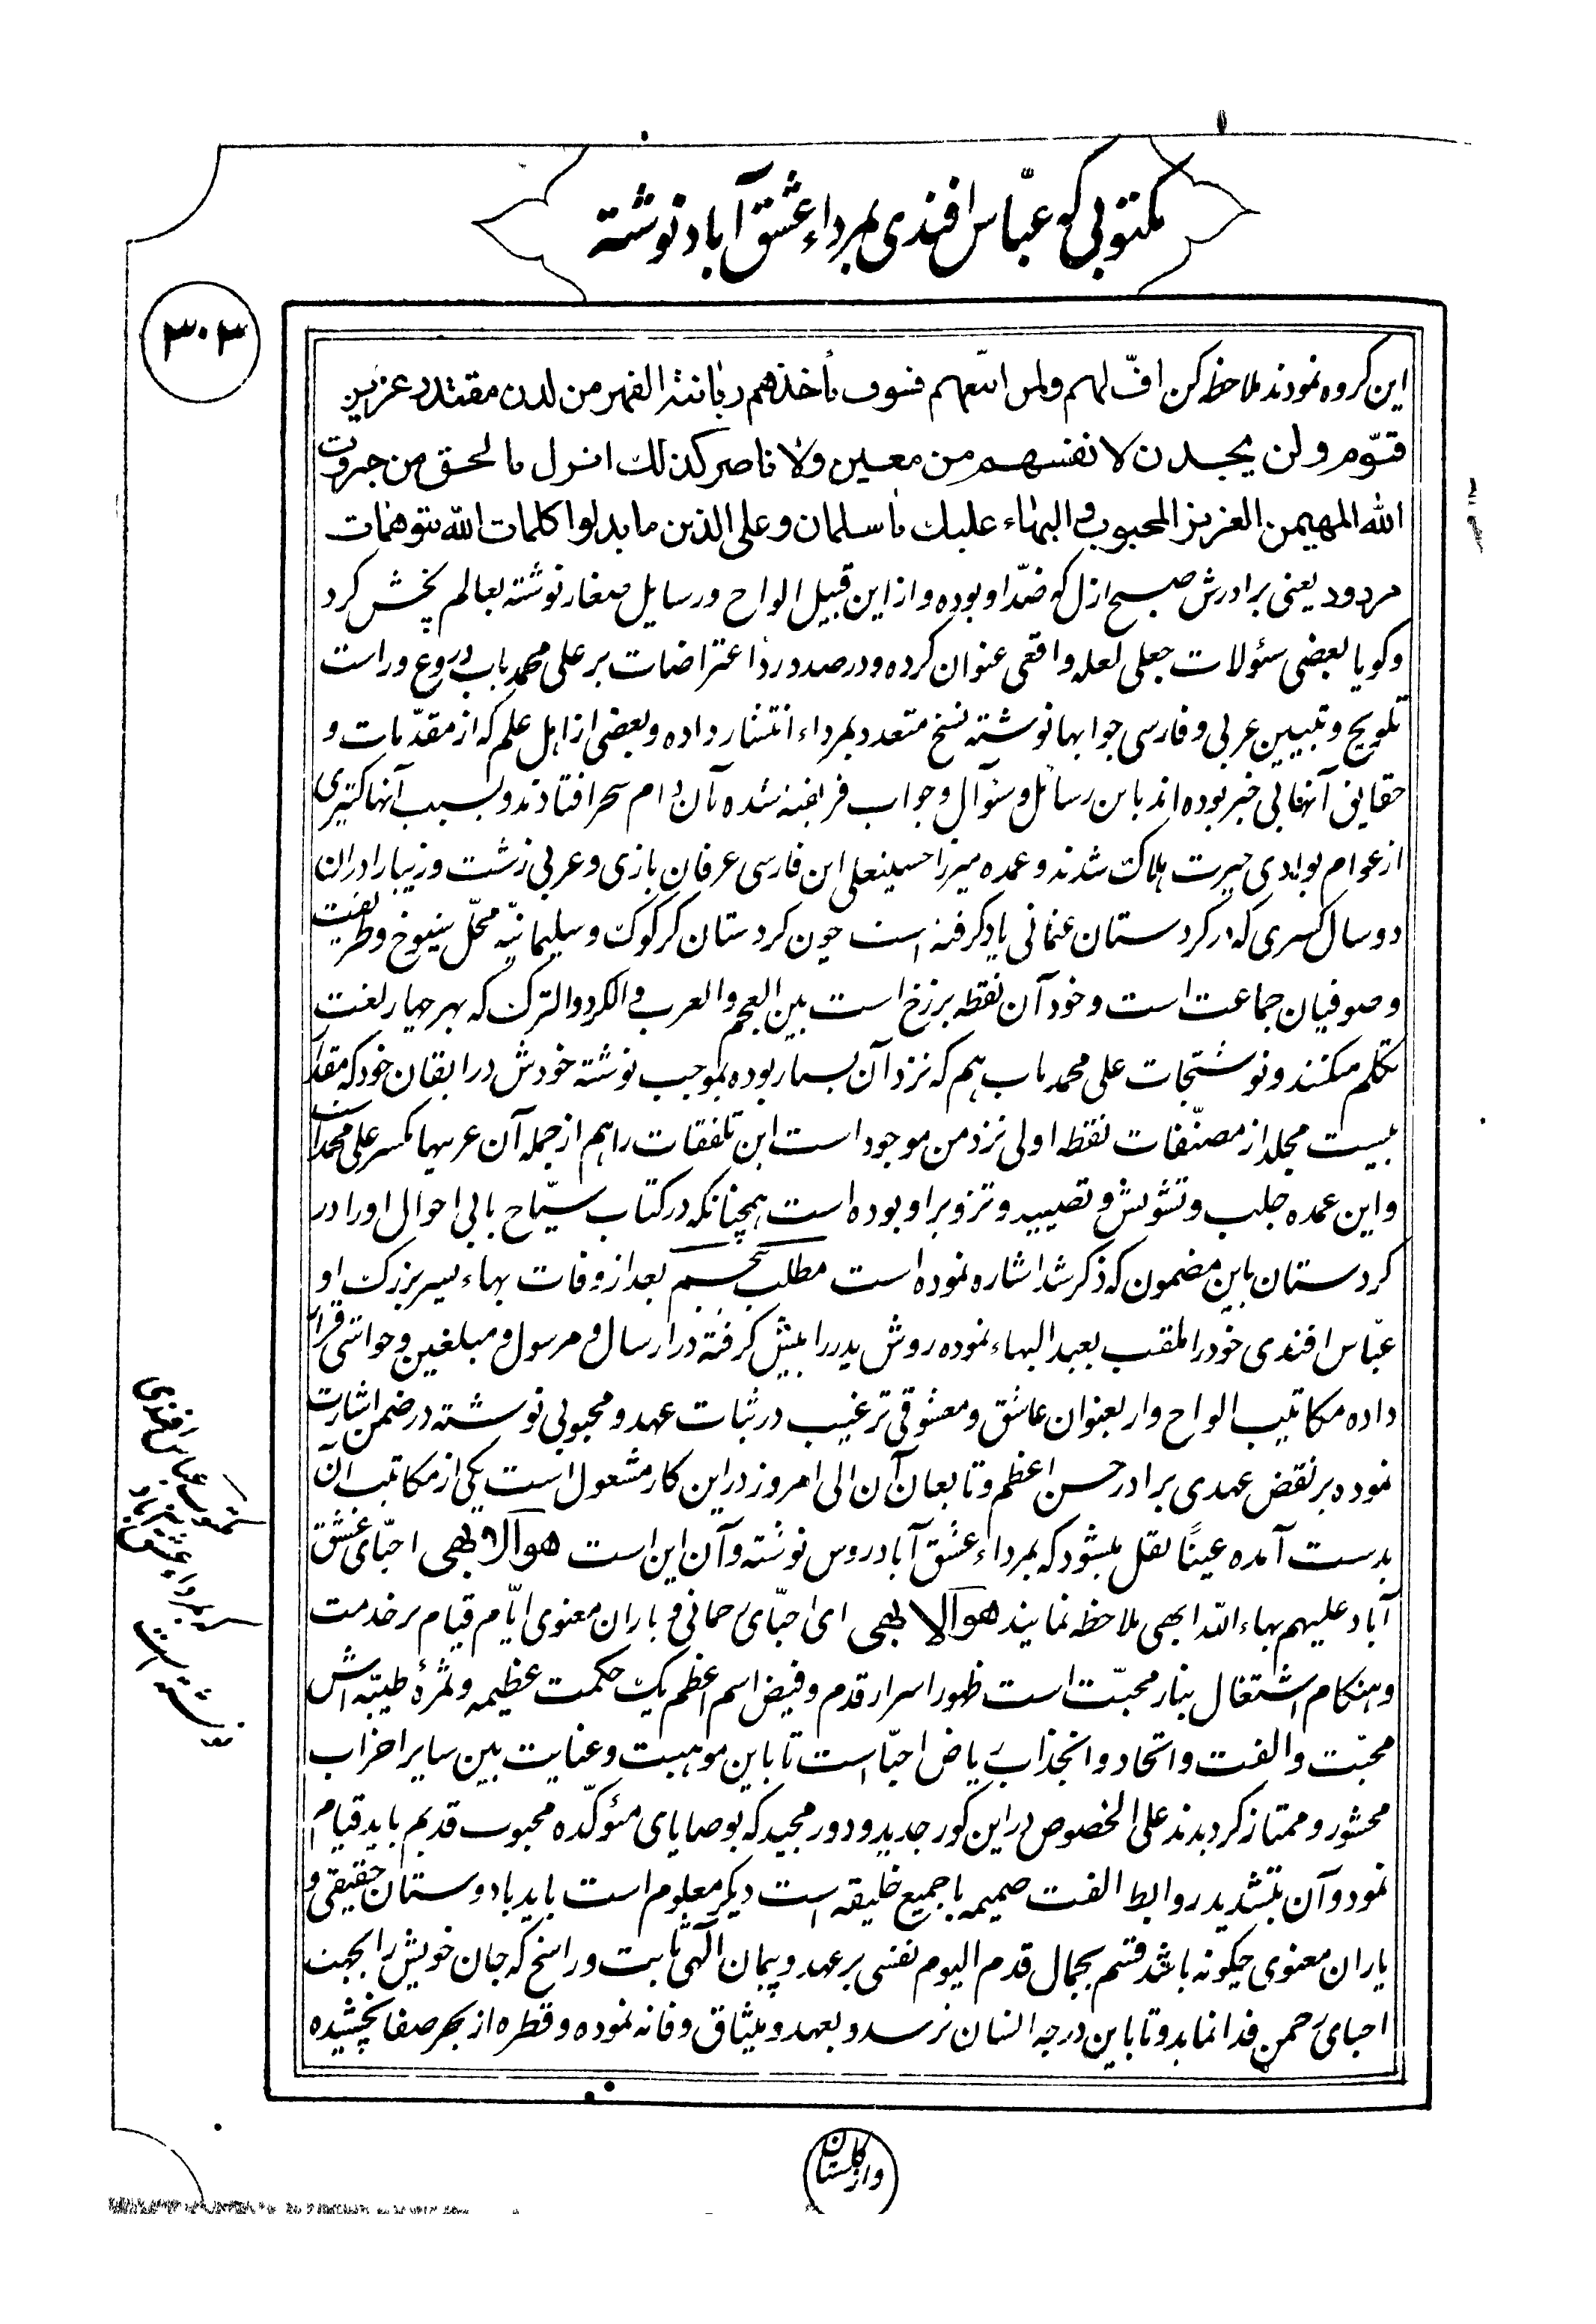 مکتوبی که عبّاس افندی بمرداء عشق آباد نوشته
۳۰۳
این کروه نمودند ملاحظه کن افّ لهم ولمن اتبعهم فسوف یأخذهم زبانیة القهر من لدن مقتدر عزیز
قیّوم و لن یجدن لانفسهم من معین ولا ناصر کذلك انزل بالحق من جبروت
الله المهیمن العزیز المحبوب و البهاء علیك یا سلمان و علی الذین ما بدلوا کلمات الله بتوهمات
مردود یعنی برادرش صبح ازل که ضدّ او بوده و از این قبیل الواح و رسایل صغار نوشته بعالم پخش کرد
وکویا بعضی سئولات جعلی لعله واقعی عنوان کرده و درصدد ردّ اعتراضات بر علی محمد باب دروغ و راست
تلویح و تبیین عربی و فارسی جوابها نوشته نسخ متعدد بمرداء انتشار داده و بعضی از اهل علم که از مقدّمات و
حقایق آنها بی خبر بوده اند باین رسائل و سئوال و جواب فریفته شده بآن دام سحر افتادند و بسبب آنها کثیری
از عوام بوادی حیرت هلاک شدند و عمده میرزا حسینعلی این فارسی عرفان بازی و عربی زشت و زیبا را در آن
دو سال کسری که در کردستان عثمانی یاد کرفته است چون کردستان کرکوک و سلیمانیّه محّل شیوخ و طریقت
و صوفیان جماعت است و خود آن نقطه برزخ است بین العجم والعرب و الکرد و الترک که بهر چهار لغت
تکلم میکنند و نوشتجات علی محمد باب هم که نزد آن بسیار بوده بموجب نوشته خودش در ایقان خود که مقدار
بیست مجلد از مصنّفات نقطه اولی نزد من موجود است این تلفیقات را هم از جمله آن عربیهای علی محمد است
و این عمده جلب و تشویش و تصیید و تزویر او بوده است همچنانکه در کتاب سیّاح بابی احوال او را در
کردستان باین مضمون که ذکر شد اشاره نموده است مطلب پنجم بعد از وفات بهاء پسر بزرک او
عبّاس افندی خود را ملقب بعبد البهاء نموده روش پدر را پیش کرفته در ارسال و مرسول و مبلغین و حواشی قرار
داده مکاتیب الواح وار بعنوان عاشق و معشوقی ترغیب در ثبات عهد و محبوبی نوشته در ضمن اشارت
نموده بر نقض عهدی برادر حسن اعظم و تابعان آن الی امروز در این کار مشعول است یکی از مکاتیب آن
بدست آمده عیناً نقل میشود که بمرداء عشق آباد روس نوشته و آن این است هو الابهی احبّای عشق
آباد علیهم بهاء الله ابهی ملاحظه نمایند هو الابهی ای احبّای رحمانی و یاران معنوی ایّام قیام بر خدمت
و هنکام اشتغال بنار محبّت است ظهور اسرار قدم و فیض اسم اعظم یک حکمت عظیمه و ثمرهٔ طیّبه اش
محبّت و الفت و اتحاد و انجذاب ریاض احبّا است تا باین موهبت و عنایت بین سایر احزاب
محشور و ممتاز کردیدند علی الخصوص در این کور جدید و دور مجید که بوصایای مئوکّده محبوب قدیم باید قیام
نمود و آن بتشدید روابط الفت صمیمه با جمیع خلیقه است دیکر معلوم است باید با دوستان حقیقی و
یاران معنوی چکونه باشد قسم بجمال قدم الیوم نفسی بر عهد و پیمان الّهی ثابت و راسخ که جان خویش را بجهت
احبای رحمن فدا نماید و تا باین درجه انسان نرسد و بعهد و میثاق وفا نه نموده و قطره از بحر صفا نچشیده
مکتوب عباس افندی
که بمرداء عشق آباد
نوشته است
وازکلستان